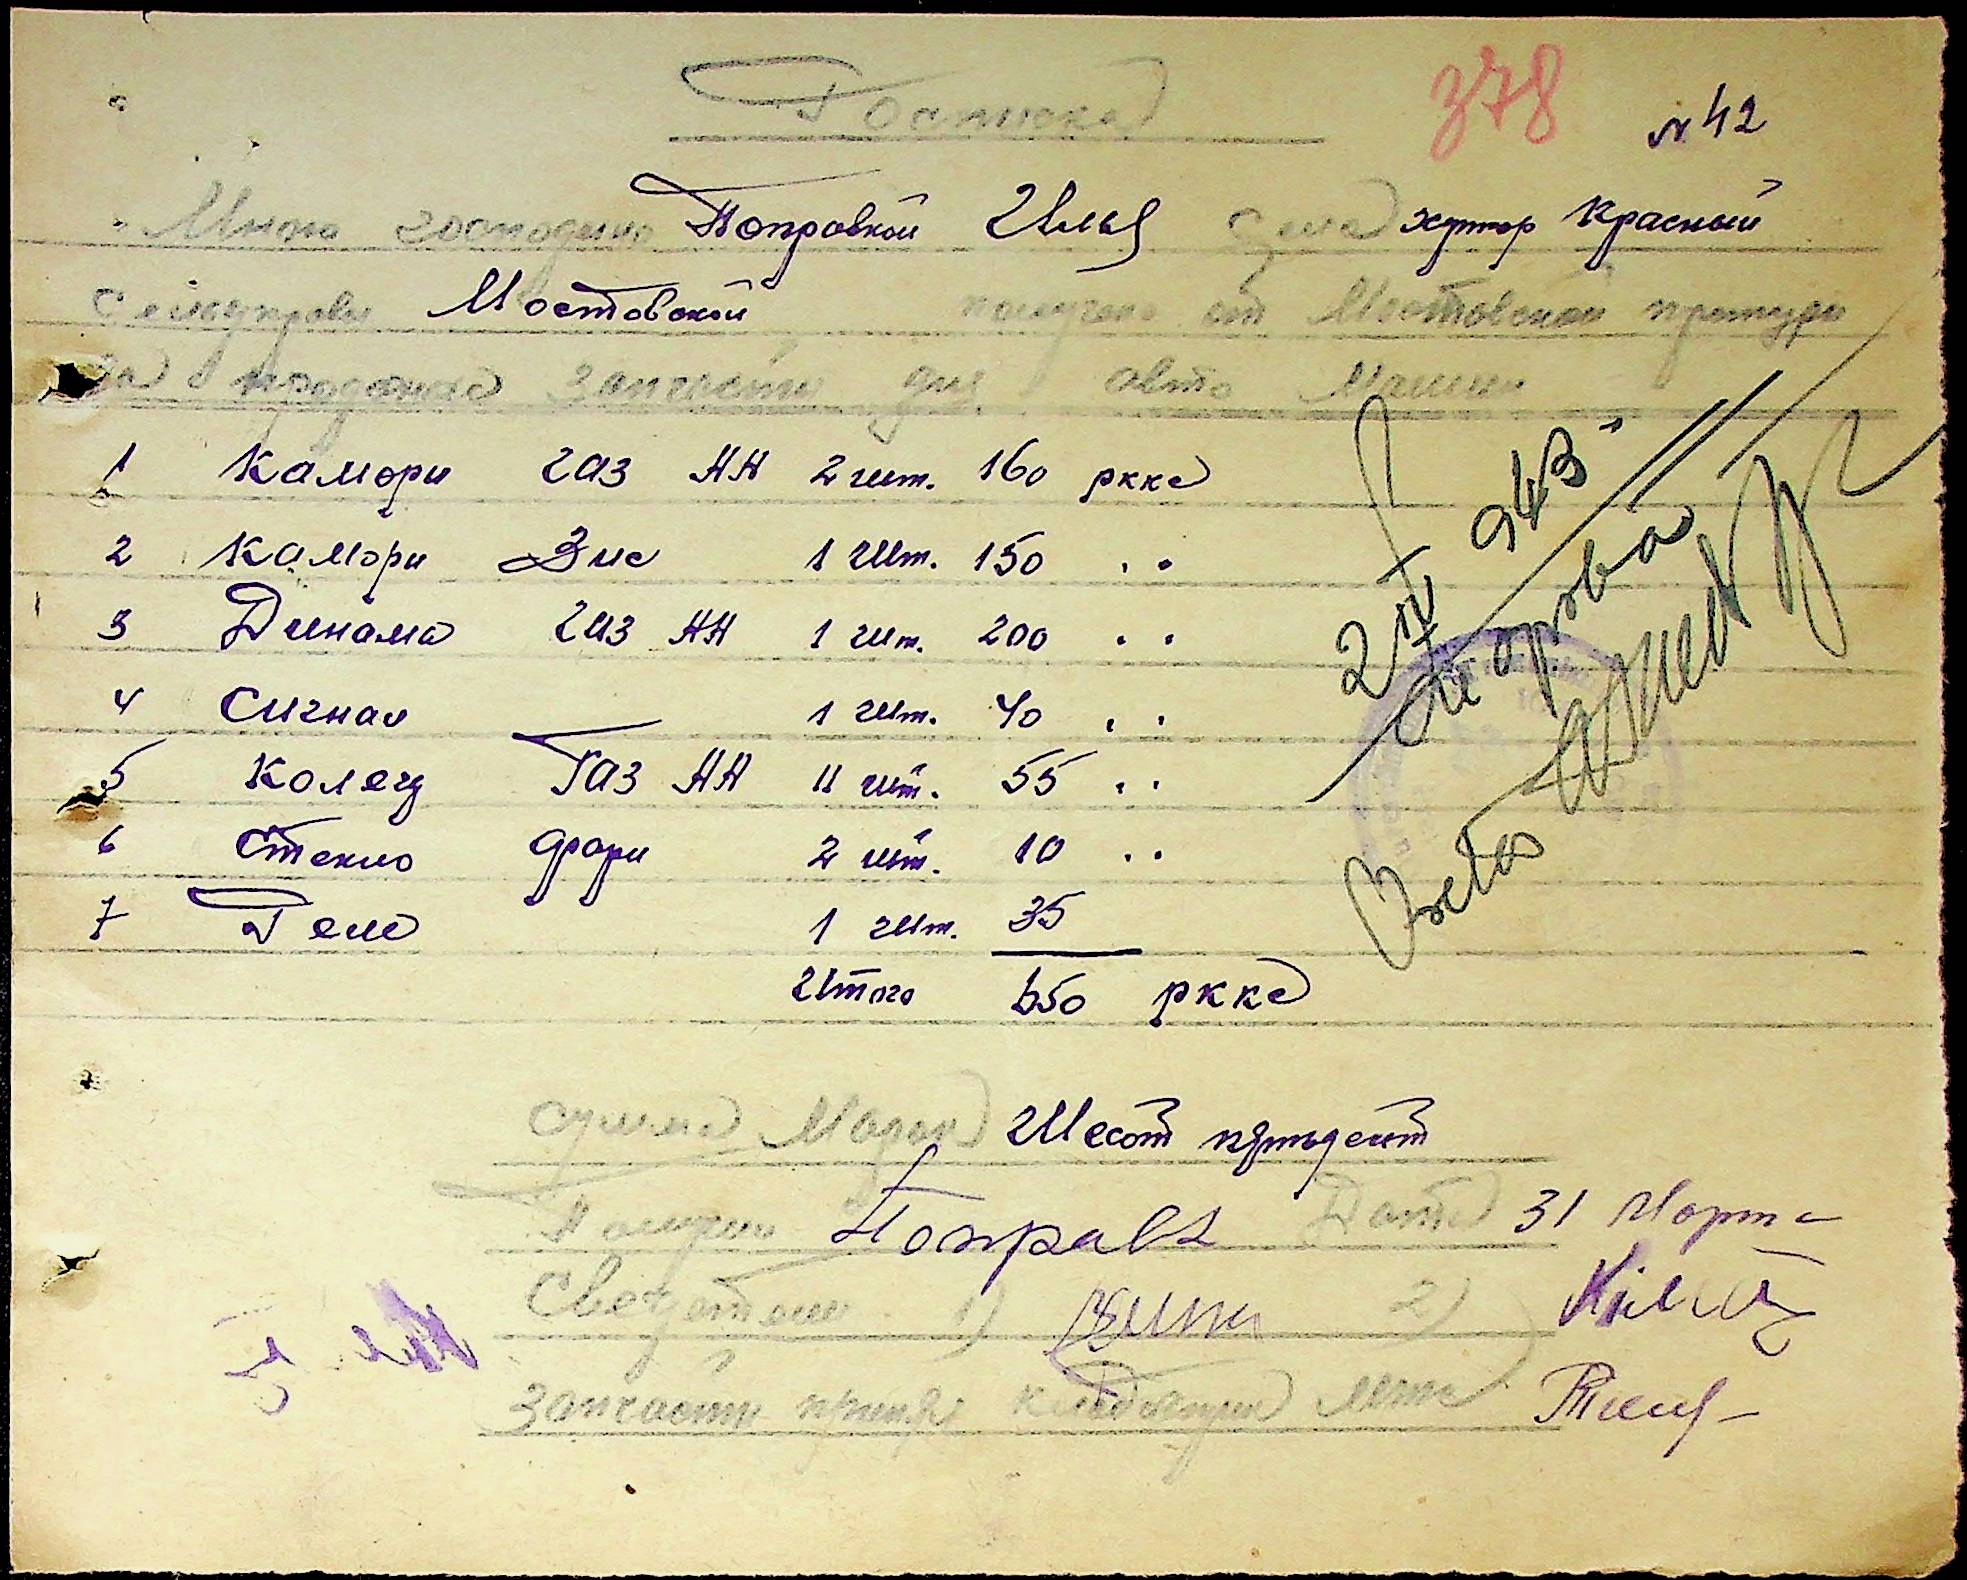 Росписка
378
№ 42
Мною господино Поправкой Илья села хутор Красный
Сельуправы Мостовской получено от Мостовской
за проданые запчасти для авто машин
1 Камори газ АА 2 шт. 160 ркке
2 Камори Зис 1 шт. 150 " "
3 Динамо газ АА 1 шт. 200 " "
4 Сигнал 1 шт. 40 " "
5 Колец Газ АА 11 шт. 55 " "
6 Стекло фори 2 шт. 10 " "
7 Реле 1 шт. 35
Итого 650 ркке
2 IV 943
Сумма Марок Шесот
Получил Поправк Дата 31 Марта
Сведетели 1) 2)
Запчасти принял кладовщик мтс